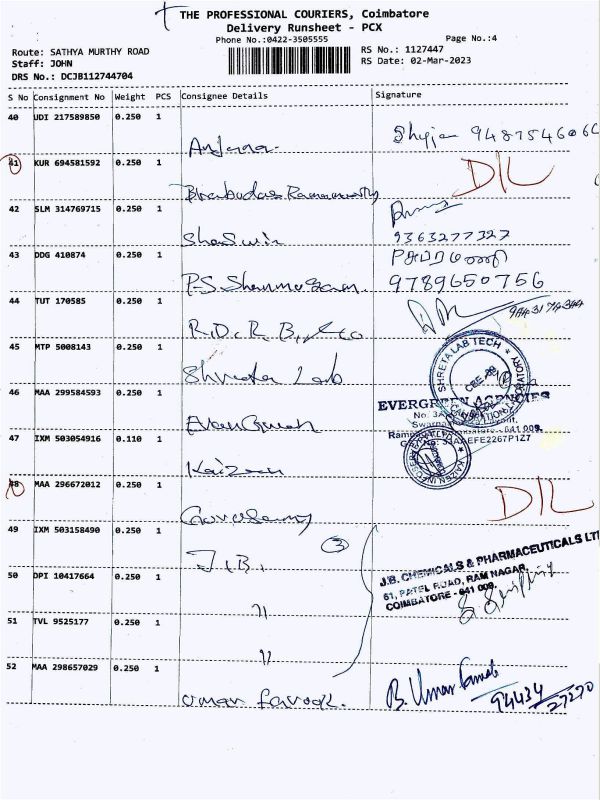 THE PROFESSIONAL COURIERS, Coimbatore
Delivery Runsheet - PCX
Phone No.:0422-3505555
Page No.:4
Route: SATHYA MURTHY ROAD
RS No.: 1127447
Staff: JOHN
RS Date: 02-Mar-2023
DRS No.: DCJB112744704
S No Consignment No Weight PCS Consignee Details Signature
40 UDI 217589850 0.250 1
Anjana. 94875460
41 KUR 694581592 0.250 1 DIL
Prabudas Ramamurthy
42 SLM 314769715 0.250 1
Shaswin 9363277327
43 DDG 410874 0.250 1
P.S. Shanmugam. 9789650756
44 TUT 170585 0.250 1
R.D.R B, &co
45 MTP 5008143 0.250 1
Shreeta Lab
SHRETA LAB TECH
46 MAA 299584593 0.250 1
EVERGREEN AGENCIES
Evergreen
47 IXM 503054916 0.110 1
Kaizen
48 MAA 296672012 0.250 1 DIL
49 IXM 503158490 0.250 1
J.B. 3
50 DPI 10417664 0.250 1
J.B. CHEMICALS & PHARMACEUTICALS LT
61, PATEL ROAD, RAM NAGAR,
COIMBATORE - 641 009.
"
51 TVL 9525177 0.250 1
"
52 MAA 298657029 0.250 1
Umar Farook. B. Umar Farook
94434
27270